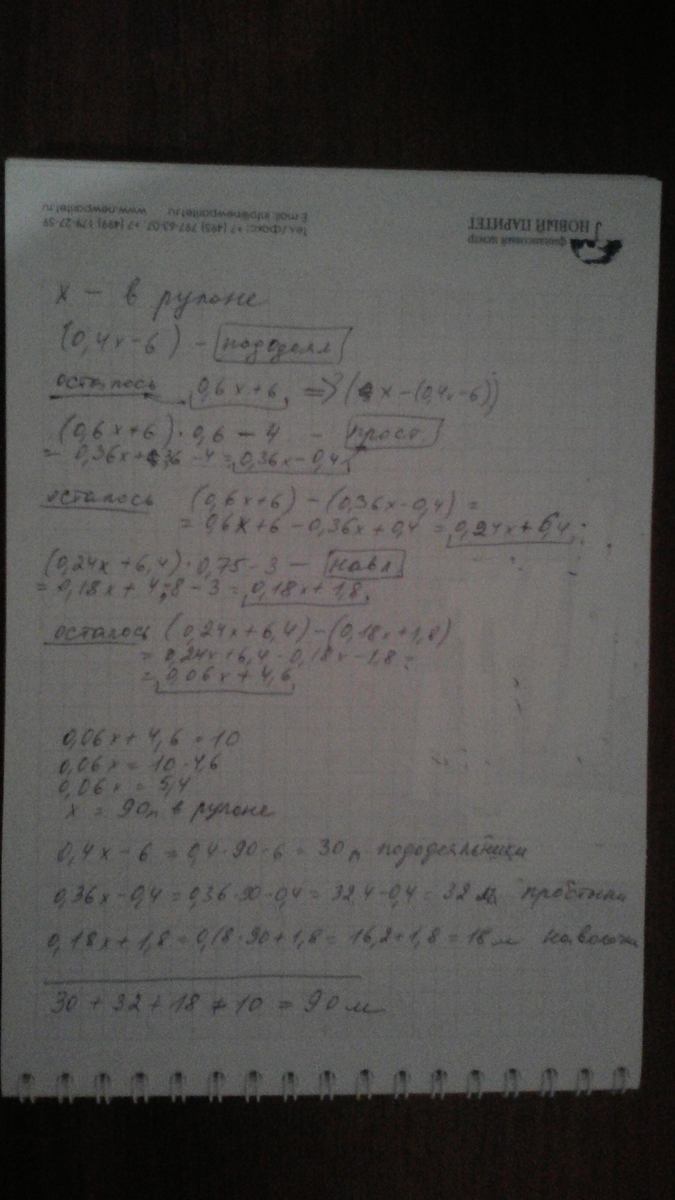 Тел./факс: +7 (495) 797-63-07, +7 (499) 179-27-59
E-mail: info@newparitet.ru www.newparitet.ru
финансовый центр
НОВЫЙ ПАРИТЕТ
x – в рулоне
(0,4x-6) - пододеял
осталось 0,6x+6 => (x-(0,4x-6))
(0,6x+6)·0,6-4 - прост.
= 0,36x+3,6-4=0,36x-0,4
осталось (0,6x+6)-(0,36x-0,4)=
= 0,6x+6-0,36x+0,4=0,24x+6,4
(0,24x+6,4)·0,75-3 - навл
= 0,18x+4,8-3=0,18x+1,8
осталось (0,24x+6,4)-(0,18x+1,8)
= 0,24x+6,4-0,18x-1,8=
= 0,06x+4,6
0,06x+4,6=10
0,06x=10-4,6
0,06x=5,4
x = 90м в рулоне
0,4x-6=0,4·90-6=30м пододеяльники
0,36x-0,4=0,36·90-0,4=32,4-0,4=32м простыни
0,18x+1,8=0,18·90+1,8=16,2+1,8=18м наволочки
30+32+18+10=90м